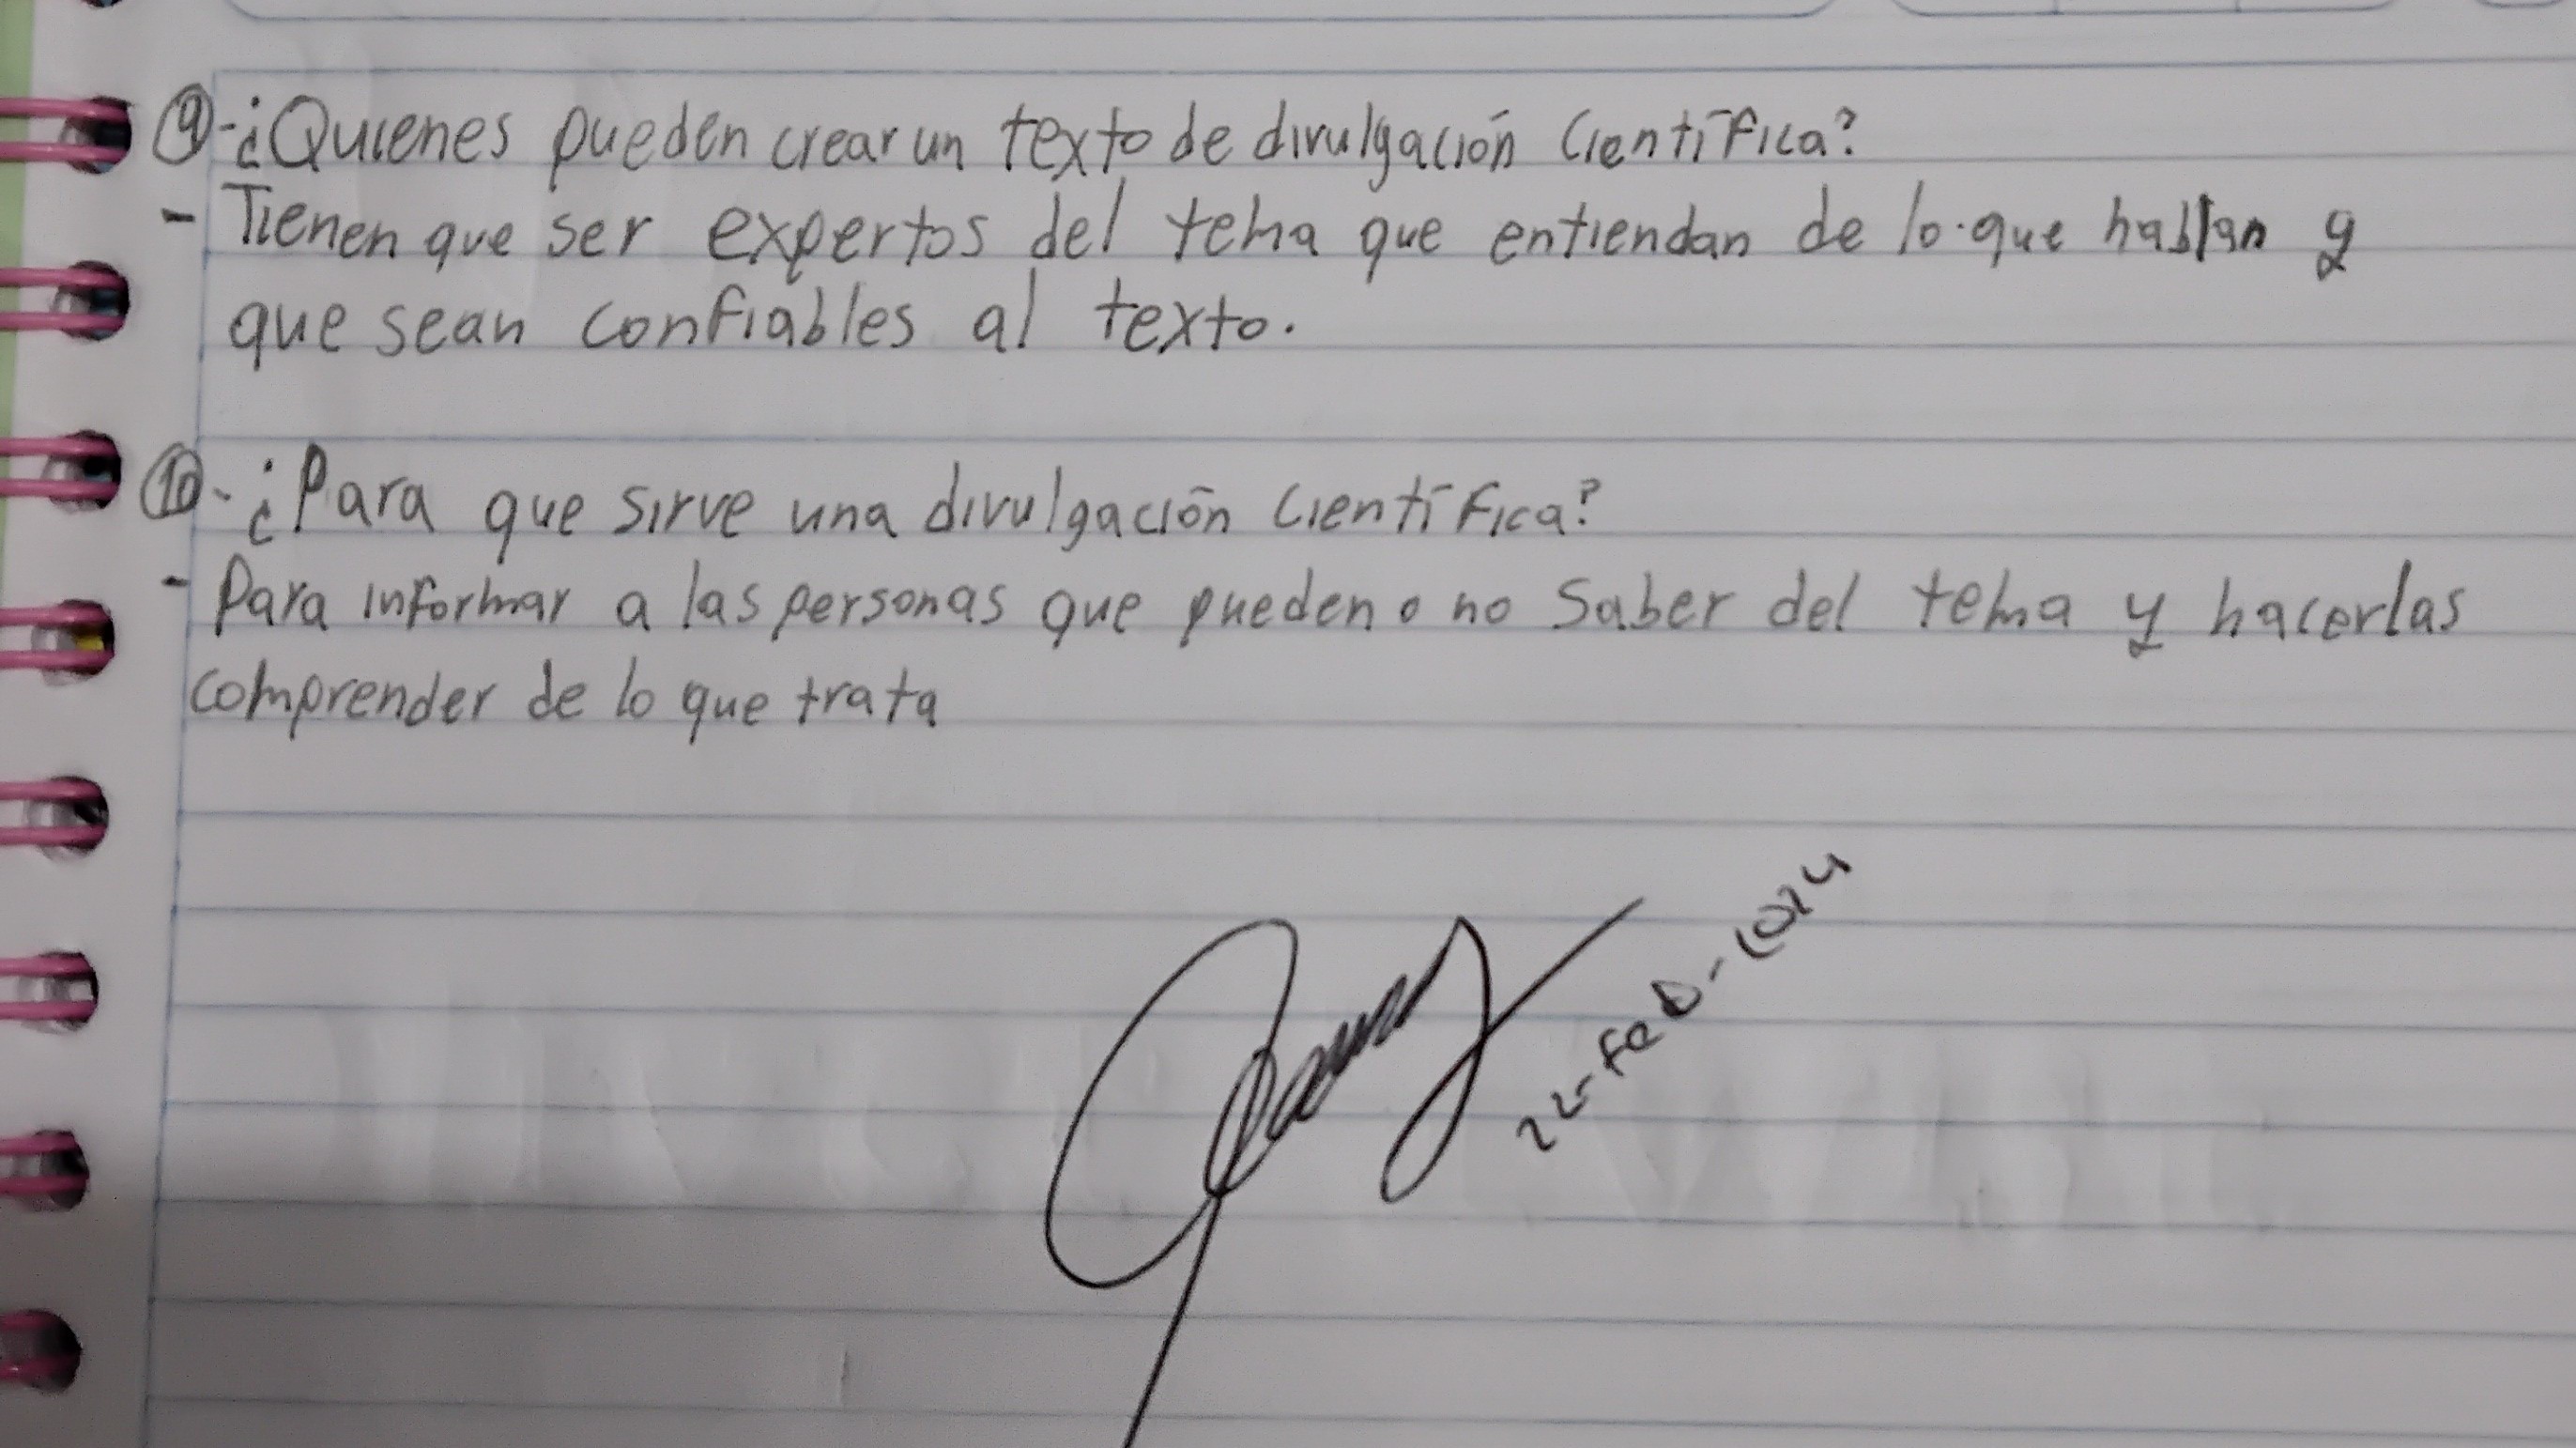 9-¿Quienes pueden crear un texto de divulgación Científica?
- Tienen que ser expertos del tema que entiendan de lo que hablan y
que sean confiables al texto.
10-¿Para que sirve una divulgación Científica?
- Para informar a las personas que pueden o no saber del tema y hacerlas
comprender de lo que trata
22-Feb-2024